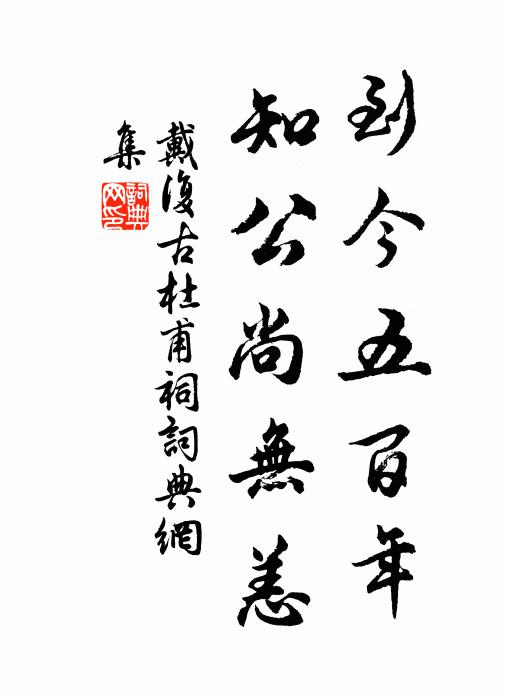 到今五百年
知公尚無恙
戴復古杜甫祠詞典網
集
詞典網印